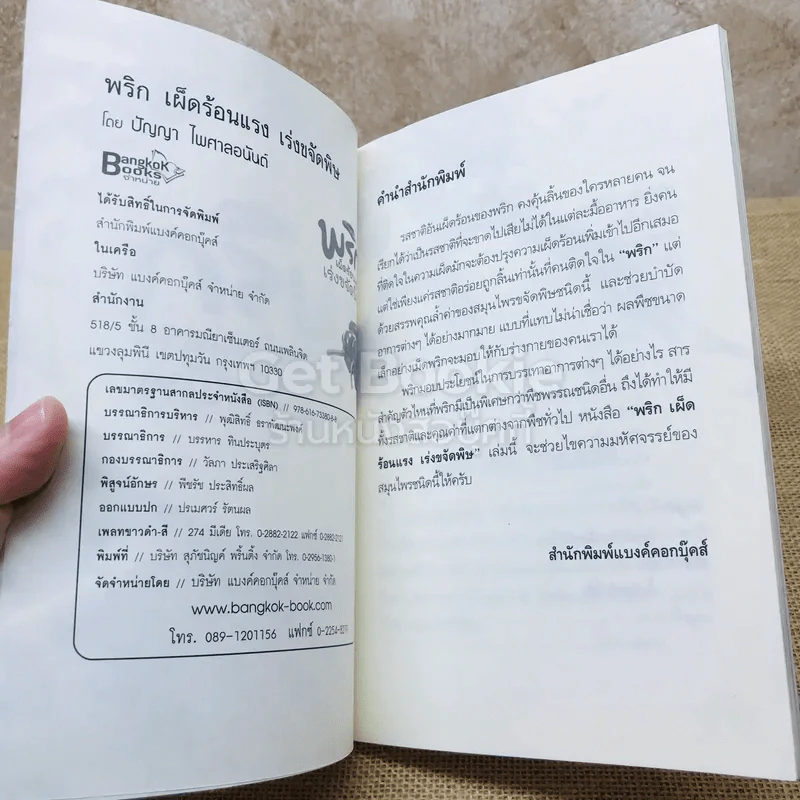 พริก เผ็ดร้อนแรง เร่งขจัดพิษ
โดย ปัญญา ไพศาลอนันต์
Bangkok
Books
จำหน่าย
ได้รับสิทธิ์ในการจัดพิมพ์
สำนักพิมพ์แบงค์คอกบุ๊คส์
ในเครือ
บริษัท แบงค์คอกบุ๊คส์ จำหน่าย จำกัด
สำนักงาน
518/5 ชั้น 8 อาคารมณียาเซ็นเตอร์ ถนนเพลินจิต
แขวงลุมพินี เขตปทุมวัน กรุงเทพฯ 10330
พริก
เร่งขจัด
เลขมาตรฐานสากลประจำหนังสือ (ISBN) // 978-616-73380-8-8
บรรณาธิการบริหาร // พุฒิสิทธิ์ ธราพัฒนะพงค์
บรรณาธิการ // บรรหาร ทินประบุตร
กองบรรณาธิการ // วัลภา ประเสริฐศิลา
พิสูจน์อักษร // พีชรัช ประสิทธิ์ผล
ออกแบบปก // ปรเมศวร์ รัตนผล
เพลทขาวดำ-สี // 274 มีเดีย โทร. 0-2882-2122 แฟกซ์ 0-2882-2121
พิมพ์ที่ // บริษัท สุภัชนิญค์ พริ้นติ้ง จำกัด โทร. 0-2956-1380-1
จัดจำหน่ายโดย // บริษัท แบงค์คอกบุ๊คส์ จำหน่าย จำกัด
www.bangkok-book.com
โทร. 089-1201156 แฟกซ์ 0-2254-
คำนำสำนักพิมพ์
รสชาติอันเผ็ดร้อนของพริก คงคุ้นลิ้นของใครหลายคน จน
เรียกได้ว่าเป็นรสชาติที่จะขาดไปเสียไม่ได้ในแต่ละมื้ออาหาร ยิ่งคน
ที่ติดใจในความเผ็ดมักจะต้องปรุงความเผ็ดร้อนเพิ่มเข้าไปอีกเสมอ
แต่ใช่เพียงแค่รสชาติอร่อยถูกลิ้นเท่านั้นที่คนติดใจใน “พริก” แต่
ด้วยสรรพคุณล้ำค่าของสมุนไพรขจัดพิษชนิดนี้ และช่วยบำบัด
อาการต่างๆ ได้อย่างมากมาย แบบที่แทบไม่น่าเชื่อว่า ผลพืชขนาด
เล็กอย่างเม็ดพริกจะมอบให้กับร่างกายของคนเราได้
พริกมอบประโยชน์ในการบรรเทาอาการต่างๆ ได้อย่างไร สาร
สำคัญตัวไหนที่พริกมีเป็นพิเศษกว่าพืชพรรณชนิดอื่น ถึงได้ทำให้มี
ทั้งรสชาติและคุณค่าที่แตกต่างจากพืชทั่วไป หนังสือ “พริก เผ็ด
ร้อนแรง เร่งขจัดพิษ” เล่มนี้ จะช่วยไขความมหัศจรรย์ของ
สมุนไพรชนิดนี้ให้ครับ
สำนักพิมพ์แบงค์คอกบุ๊คส์
Get Bookie